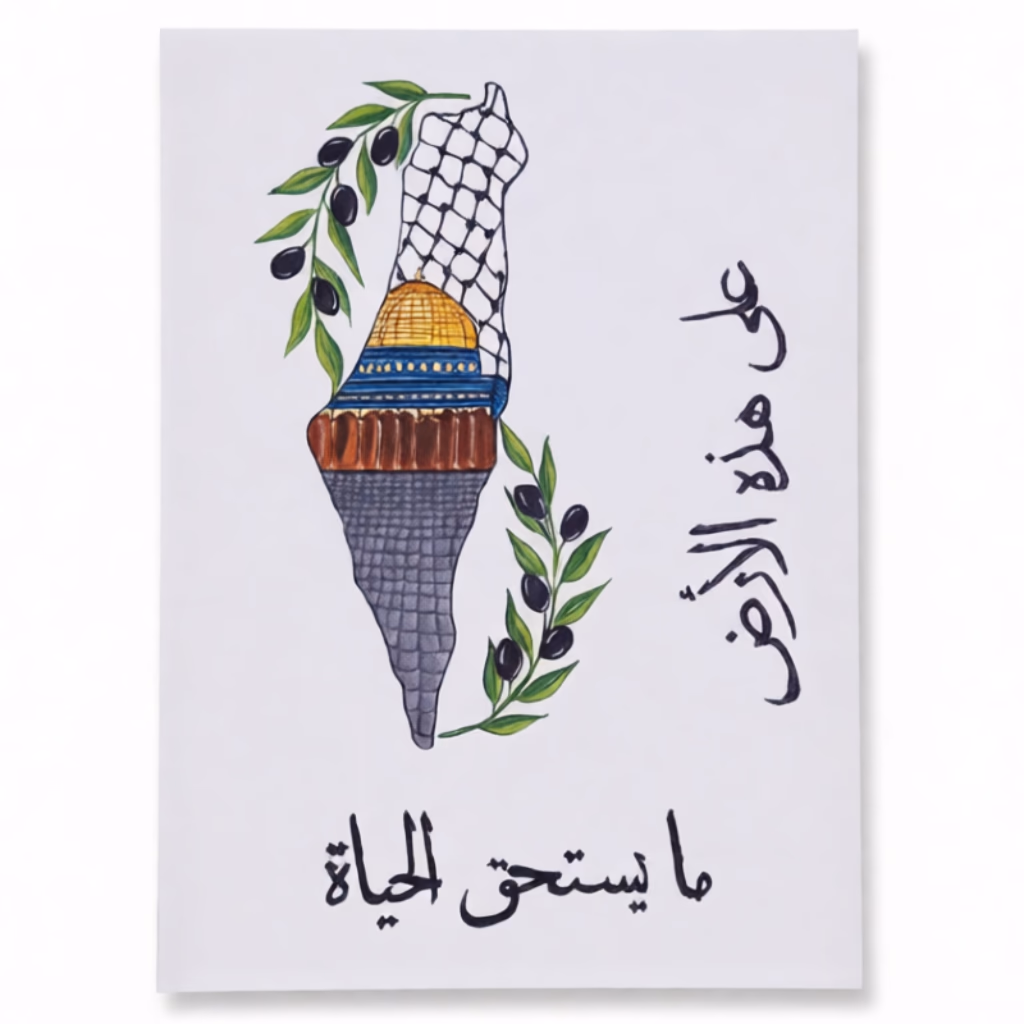 على هذه الأرض
ما يستحق الحياة